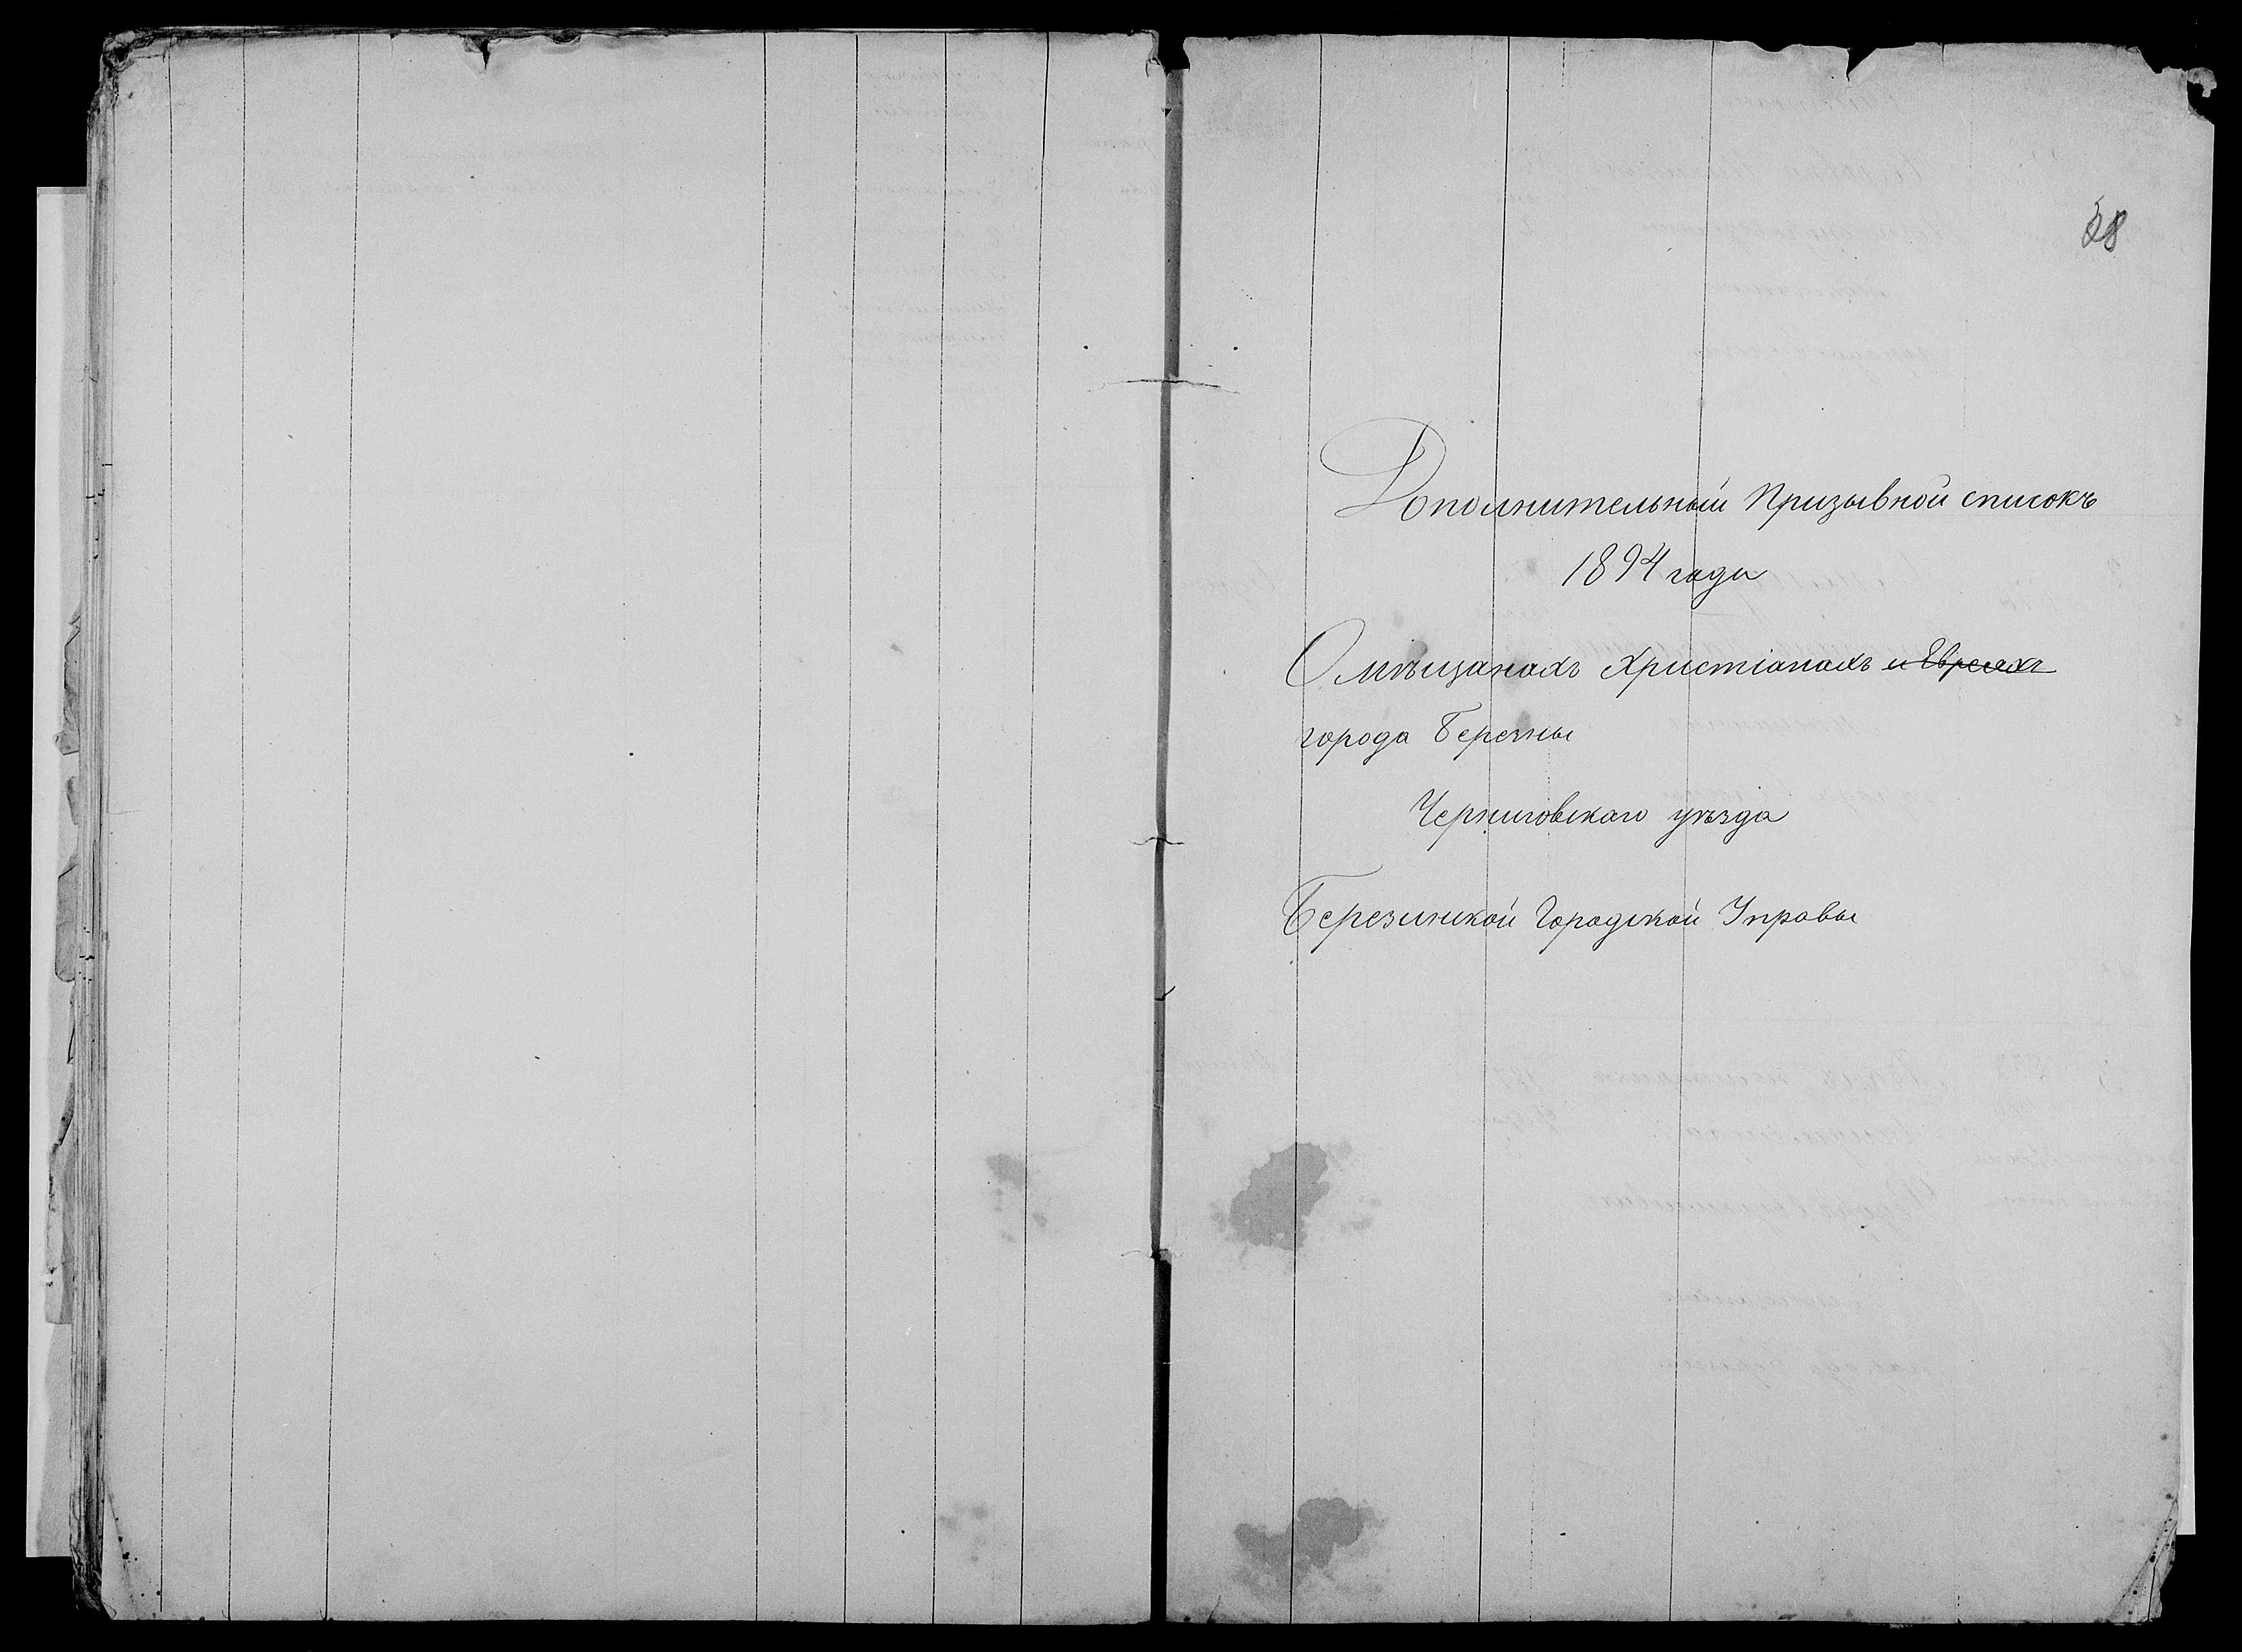 28
Дополнительный Призывной списокъ
1894 года
О мѣщанахъ Христіанахъ и Евреяхъ
города Березны
Черниговскаго уѣзда
Березинской Городской Управы